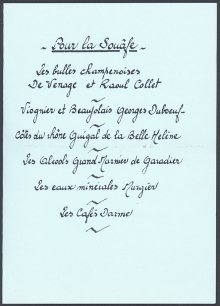 - Pour la Souâfe -
Les bulles champenoises
De Venage et Raoul Collet
~
Viognier et Beaujolais Georges Duboeuf
~
Côtes du rhône Guigal de la Belle Helène
~
Les Alcools Grand Marnier de Garadier
~
Les eaux minerales Murgier
~
Les Cafés Darmo
~